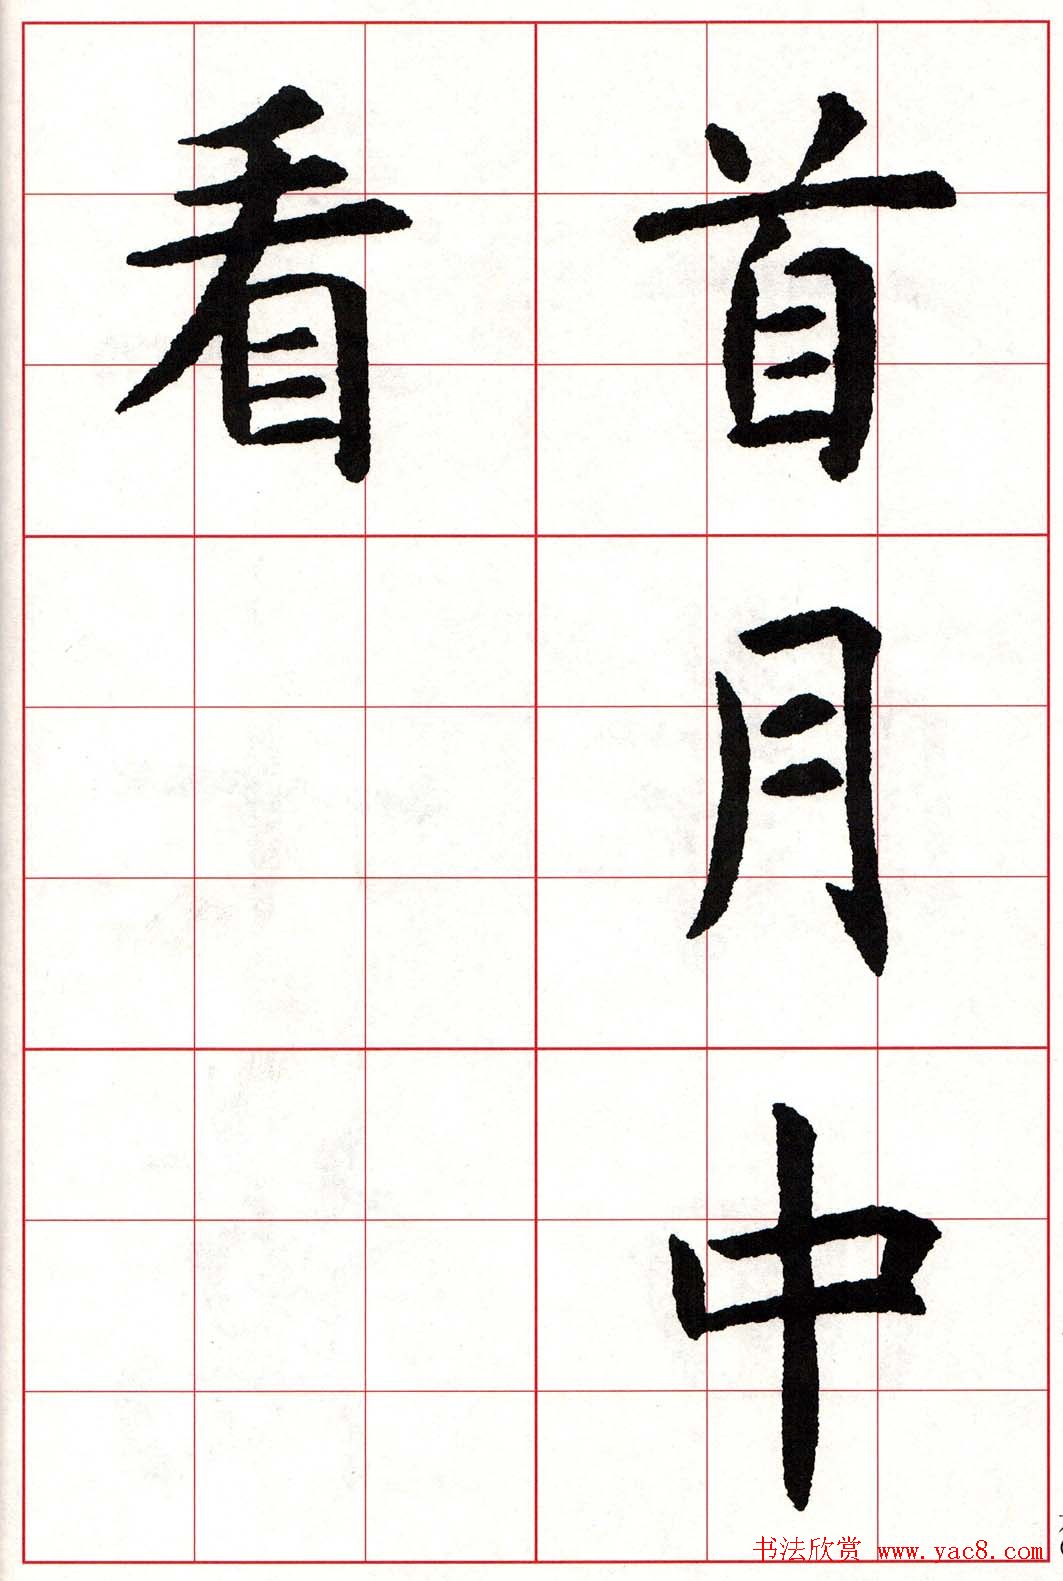 首月中
看
书法欣赏 www.yac8.com